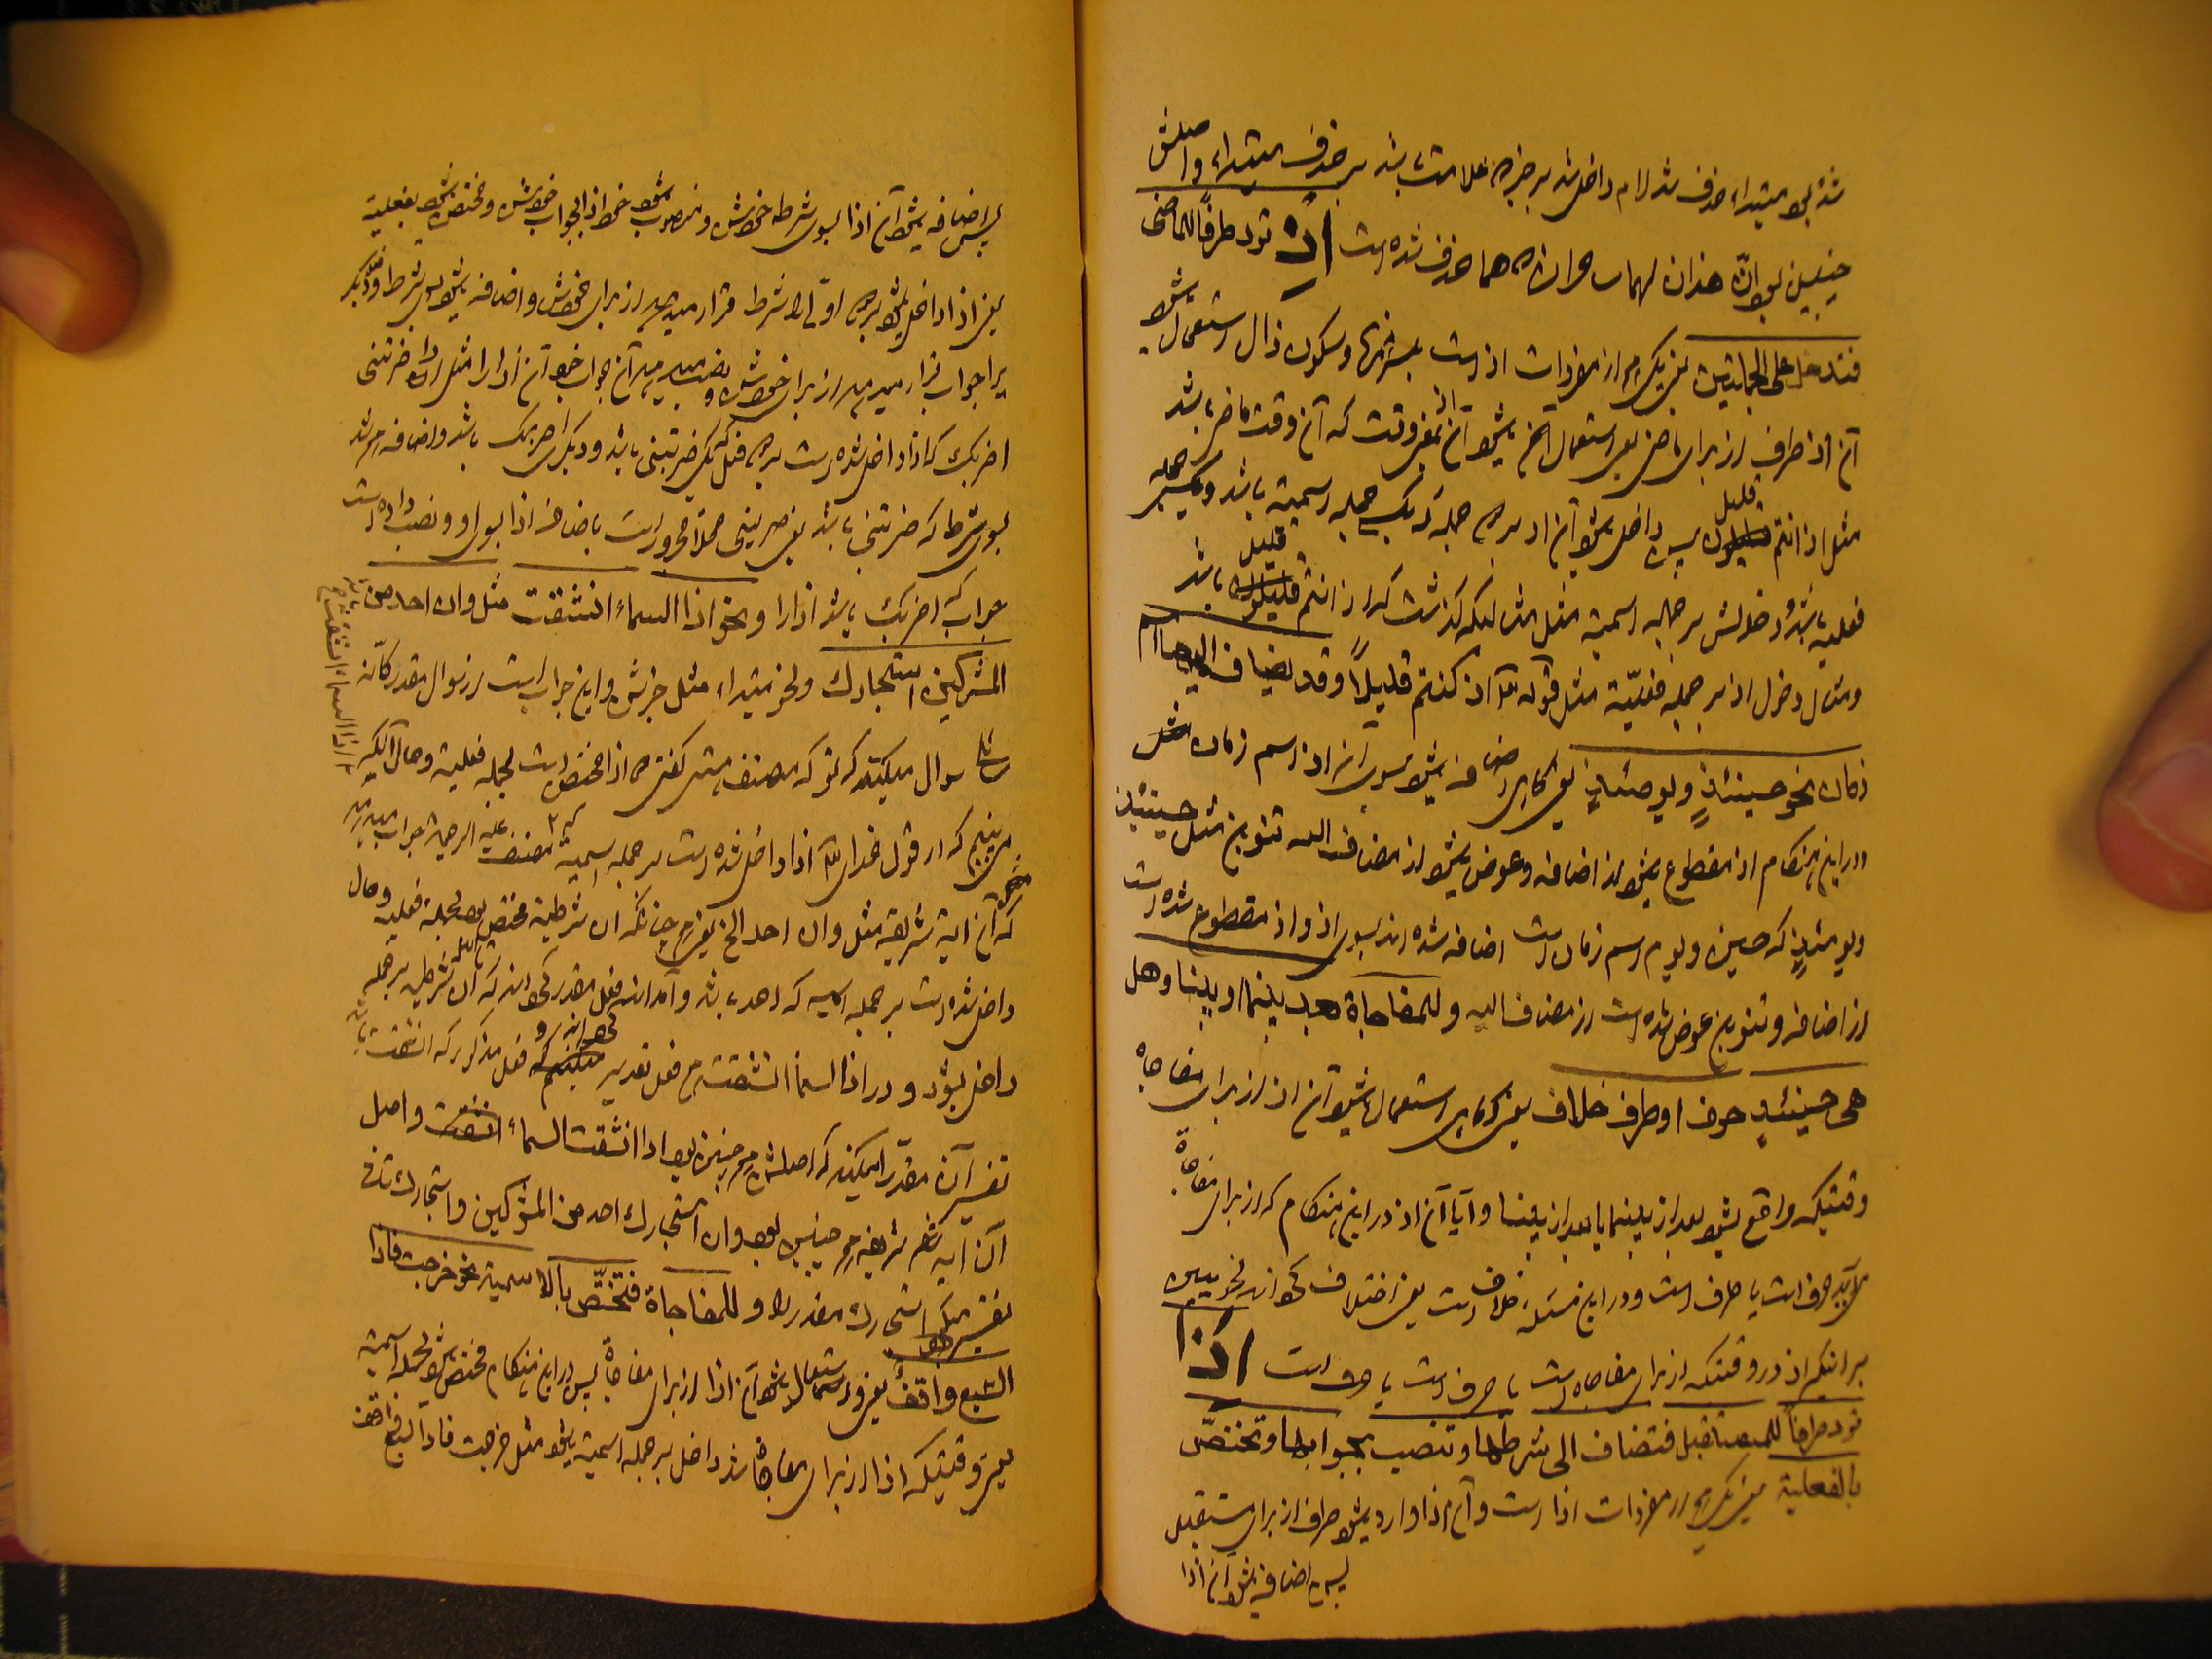 شده بود مبتداء حذف شد لام داخل شد بر خبر علامت باشد بر حذف مبتداء و اصلش
چنین بود انّ هذان لهما ساحران هما حذف شده است اذ ترد ظرفاً للماضی
فتدخل علی الجملتین یعنی یکی از مفردات اذ است بکسر همزه و سکون ذال استعمال میشود
آن اذ ظرف از برای ماضی یعنی استعمال میشود آن اذ بمعنی وقت که آن وقت ماضی باشد
مثل اذ انتم قلیل پس داخل میشود آن اذ بر جمله که یک جمله اسمیة باشد و یکی جمله
فعلیه باشد و دخولش بر جمله اسمیة مثل مثالیکه گذشت که اذ انتم قلیل باشد
و مثال دخول اذ بر جمله فعلیّة مثل قوله تعالی اذ کنتم قلیلاً و قد یضاف الیها اسم
زمان نحو حینئذٍ و یومئذٍ یعنی گاهی اضافه میشود بسوی آن اذ اسم زمان مثل
و در این هنگام اذ مقطوع میشود از اضافه و عوض میشود از مضاف الیه تنوین مثل حینئذٍ
و یومئذٍ که حین و یوم اسم زمان است اضافه شده اند بسوی اذ و اذ مقطوع شده است
از اضافه و تنوین عوض شده است از مضاف الیه و للمفاجاة بعد بینما و بینا و هل
هی حینئذٍ حرف او ظرف خلاف یعنی گاهی استعمال میشود آن اذ از برای مفاجاه
وقتیکه واقع میشود بعد از بینما یا بعد از بینا و آیا آن اذ در این هنگام که از برای مفاجاة
میآید حرف است یا ظرف است و در این مسئله خلاف است یعنی اختلاف کرده اند نحویین
بر اینکه اذ در وقتیکه از برای مفاجاه است یا ظرف است یا حرف است اذا
ترد ظرفاً للمستقبل فتضاف الی شرطها و تنصب بجوابها و تختصّ
بالفعلیة یعنی یکی از مفردات اذا است و آن اذا وارد میشود ظرف از برای مستقبل
پس اضافه میشود آن اذا
پس اضافه میشود آن اذا بسوی شرط خودش و منصوب میشود خود اذا بجواب خودش و مختص میشود بفعلیة
یعنی اذا داخل میشود بر اولی را شرط قرار میدهد از برای خودش و اضافه میشود بسوی شرط و دیگر
برا جواب قرار میدهد از برای خودش و نصب میدهد آن جواب خود آن اذا را مثل اذا ضربتنی
اضربک که اذا داخل شده است بر دو فعل که یکی ضربتنی باشد و دیگری اضربک باشد و اضافه هم شد
بسوی شرط که ضربتنی باشد یعنی ضربتنی محلاً مجرور است باضافه اذا بسوی او و نصب داده است
جواب که اضربک باشد اذا را و نحو اذا السماء انشقت مثل و ان احد من
المشرکین استجارک و نحو مبتداء مثل خبرش و این جواب است از سوال مقدر کانّه
سائل سوال میکند که تو که مصنف هستی گفتی که اذا مختص است بجمله فعلیة و حال آنکه
می بینیم که در قول خدای تعالی اذا داخل شده است بر جمله اسمیة مصنف علیه الرحمة جواب میدهد
که آن آیه شریفه مثل و ان احد الخ یعنی چنانکه ان شرطیة مختص بود بجمله فعلیه و حال
داخل شده است بر جمله اسمیه که احد باشد و آمدند فعل مقدر کرده اند که ان شرطیه بر جمله
داخل بشود و در اذا السماء انشقت هم فعل تقدیر کرده اند و فعل مذکور که انشقت باشد
تفسیر آن مقدر میکند که اصلش هم چنین بود اذا انشقت السماء انشقت و اصل
آن آیه شریفه هم چنین بود و ان استجارک احد من المشرکین و استجارک ثانی
تفسیر میکند استجارک مقدر را و للمفاجاة فتختصّ بالاسمیة نحو خرجت فاذا
السّبع واقف یعنی و استعمال میشود آن اذا از برای مفاجاة پس در این هنگام مختص میشود بجمله اسمیة
یعنی وقتیکه اذا از برای مفاجاة شد داخل بر جمله اسمیة میشود مثل خرجت فاذا السبع واقف
اذا السماء انشقت